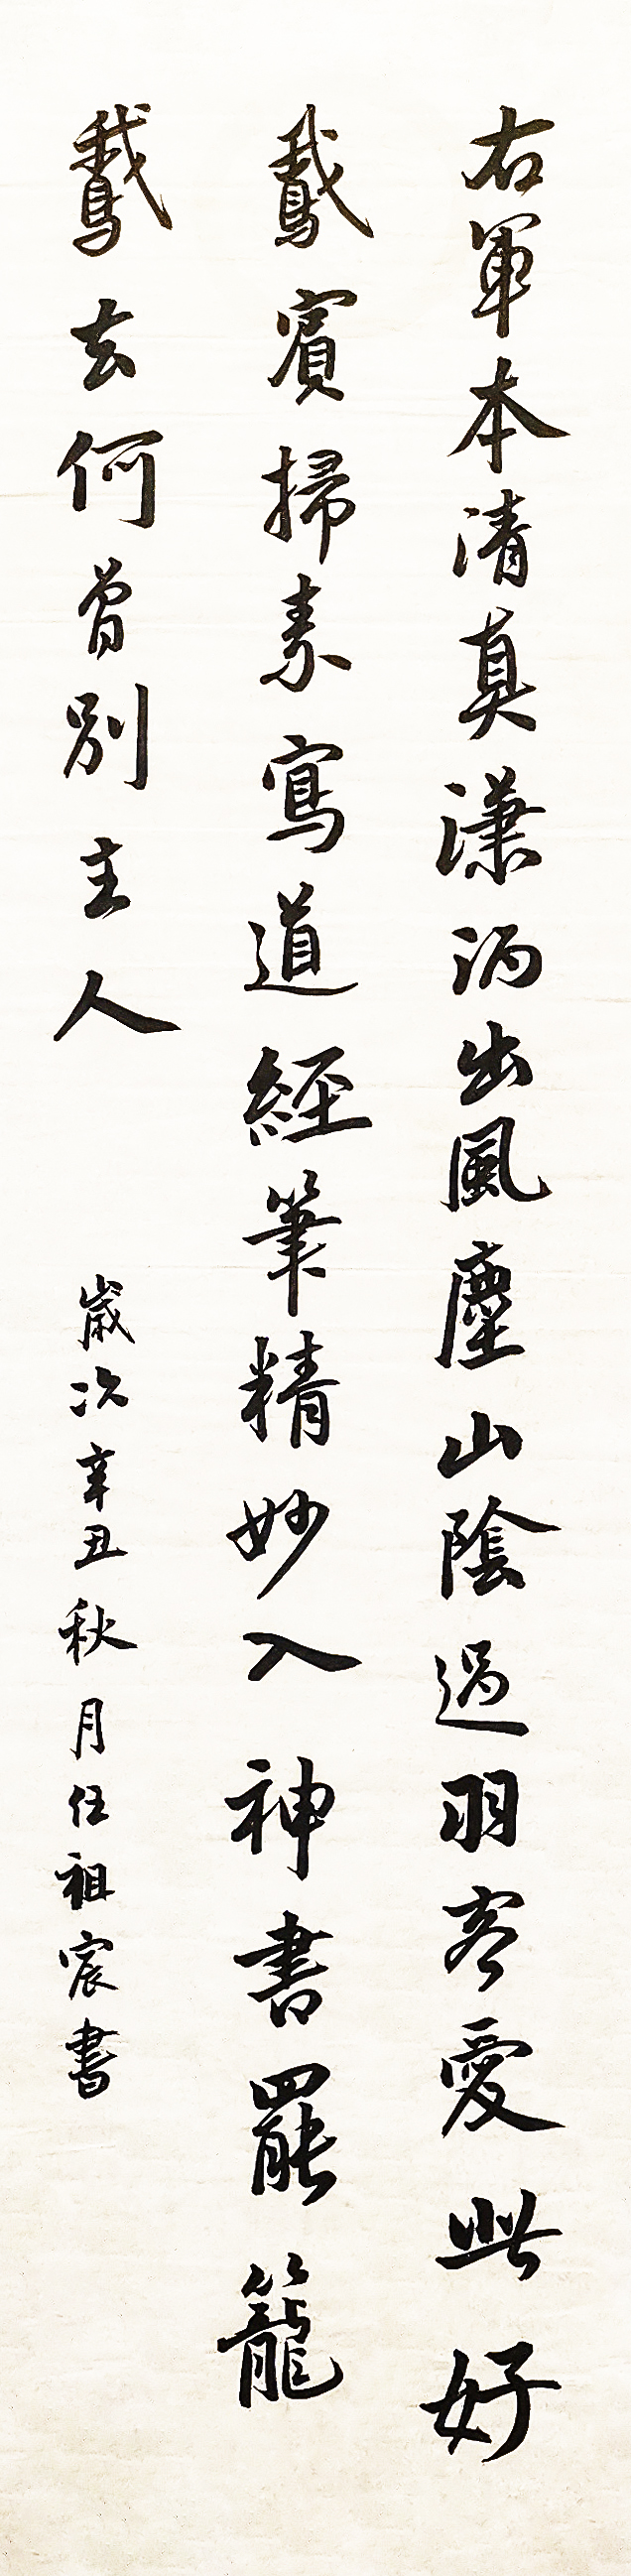 右軍本清真潇洒出風塵山陰過羽客愛此好
鵞賓掃素寫道經筆精妙入神書罷籠
鵞去何曾別主人
歲次辛丑秋月任祖宸書